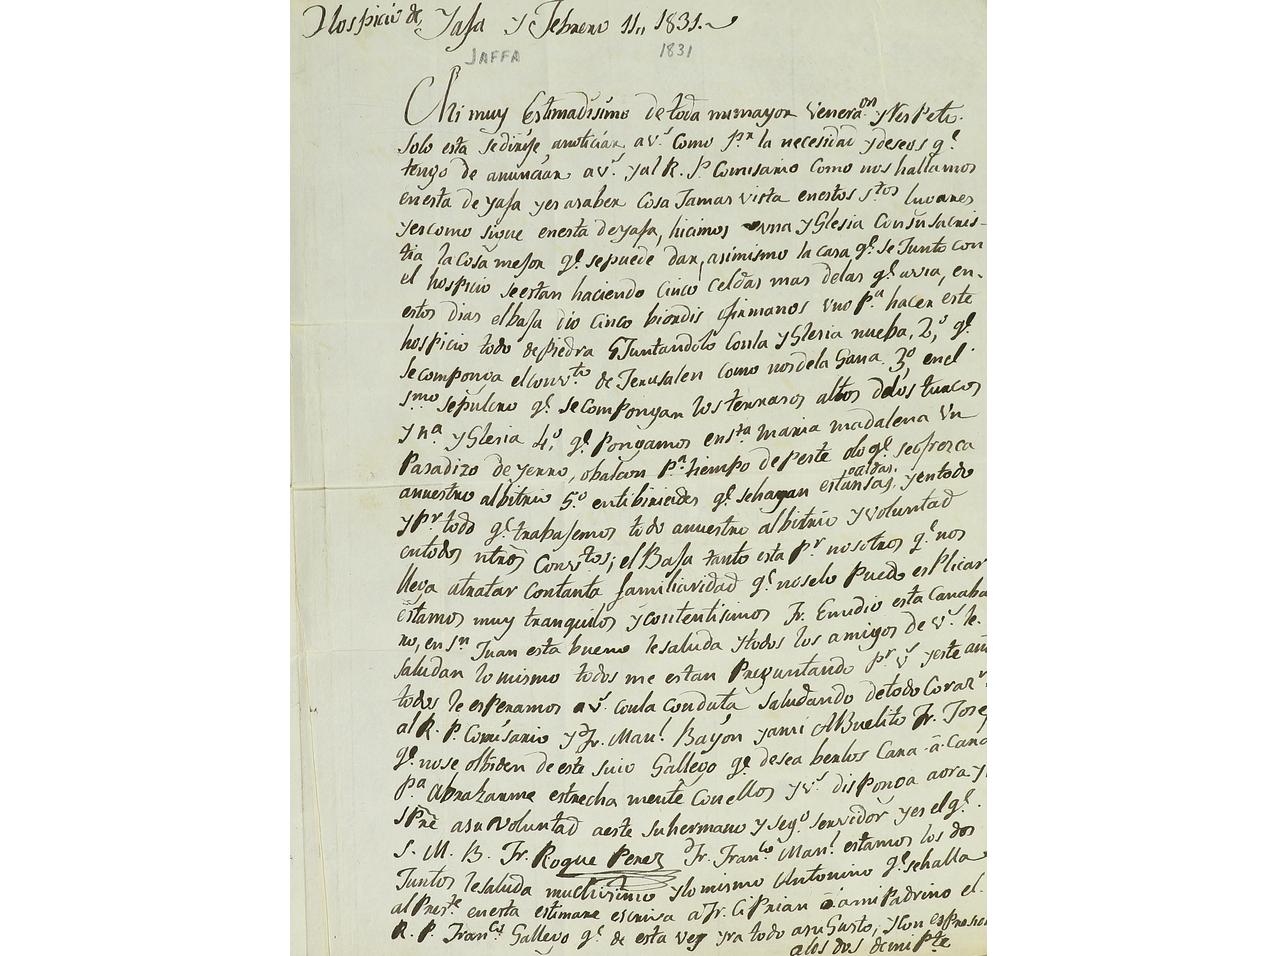 Hospicio de, Yafa y Febrero 11,, 1831.
JAFFA 1831
Mi muy Estimadisimo de toda mi mayor Venera.on y Respeto.
Solo esta se dirije anoticiar a v.s como p.r la necesidad y deseos q.e
tengo de anunciar a v.s y al R. P. Comisario como nos hallamos
en esta de yafa y es a saber cosa Jamas vista en estos s.tos lugares
y es como sigue en esta de yafa, hicimos una yGlesia con su sacris-
tia la cosa mejor q.e se puede dar, asimismo la casa q.e se Junto con
el hospicio se estan haciendo cinco celdas mas de las q.e avia, en-
estos dias el bafa dio cinco biordis firmanos uno p.a hacer este
hospicio todo de piedra Juntandolo con la yGlesia nueba, 2,º q.e
se componga el conv.to de Jerusalen como nos de la Gana. 3,º en el
s.mo sepulcro q.e se compongan los terrasos altos de los turcos
y n.a yGlesia 4,º q.e pongamos en s.ta Maria madalena un
Paradizo de yerro, o balcon p.a tiempo de Peste o lo q.e se ofrezca
a nuestro albitrio 5.º en tibiriades q.e se hagan estansas, y en todo
caldas,
y p.r todo q.e trabajemos todo a nuestro albitrio y voluntad
en todos ntros Conv.tos; el Bafa tanto esta p.r nosotros q.e nos
llega a tratar con tanta familiaridad q.e no selo puedo esplicar
estamos muy tranquilos y contentisimos Fr. Emidio esta Canaba
ro, en s.n Juan esta bueno le saluda y todos los amigos de v.s le
saludan lo mismo todos me estan Preguntando p.r v.s y este añ
todos le esperamos a v.s con la conduta saludando de todo Coraz.n
al R. P. Comisario y Fr. Man.l Bayon y a mi Abuelito Fr. Josef
q.e no se olbiden de este suio Gallego q.e desea berlos Cara â Cara
p.a Abrazarme estrecha mente con ellos y v.s disponga aora y
spre a su voluntad a este su hermano y seg.o servidor y es el q.e
S. M. B. Fr. Roque Perez Fr. Fran.co Man.l estamos los dos
Juntos le saluda muchisimo y lo mismo Antonino q.e se halla
al Pres.te en esta estimare escriva a Fr. Ciprian â mi Padrino el
R. P. Fran.co Gallego q.e de esta vez yra todo a su Gusto, y con espresion
a los dos de mi p.te